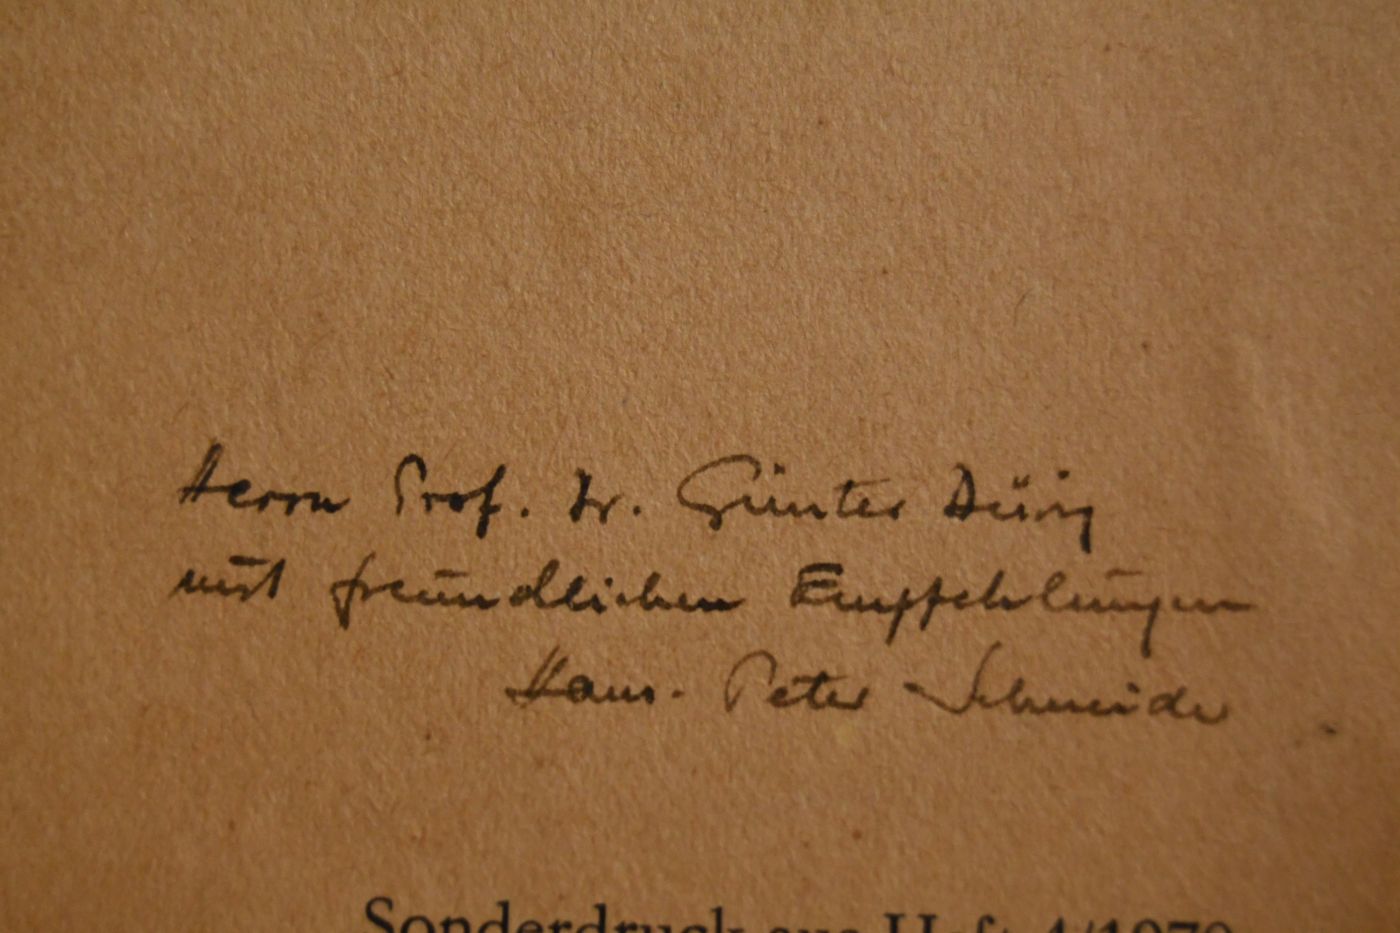 Herrn Prof. Dr. Günter Dürig
mit freundlichen Empfehlungen
Hans-Peter Schneider
Sonderdruck aus Heft 4/1979